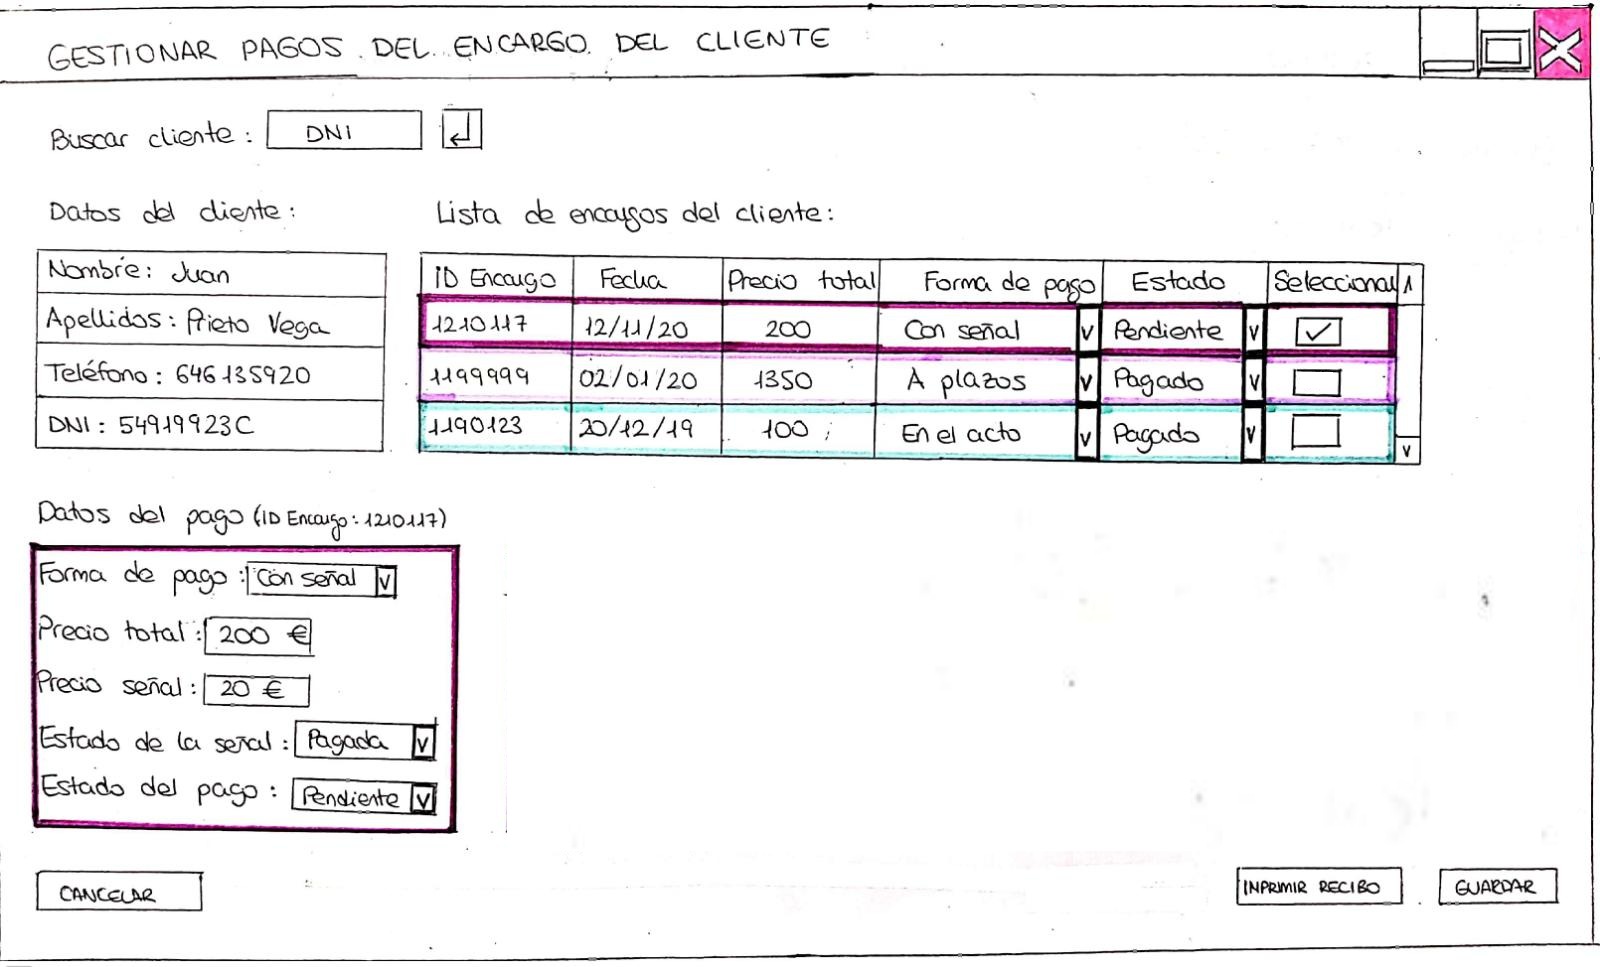 GESTIONAR PAGOS DEL ENCARGO DEL CLIENTE
Buscar cliente: DNI
Datos del cliente:
Nombre: Juan
Apellidos: Prieto Vega
Teléfono: 646135920
DNI: 54919923C
Lista de encargos del cliente:
ID Encargo Fecha Precio total Forma de pago Estado Seleccionar
1210117 12/11/20 200 Con señal Pendiente
1199999 02/01/20 1350 A plazos Pagado
1190123 20/12/19 100 En el acto Pagado
Datos del pago (ID Encargo: 1210117)
Forma de pago: Con señal
Precio total: 200 €
Precio señal: 20 €
Estado de la señal: Pagada
Estado del pago: Pendiente
CANCELAR
INPRIMIR RECIBO
GUARDAR